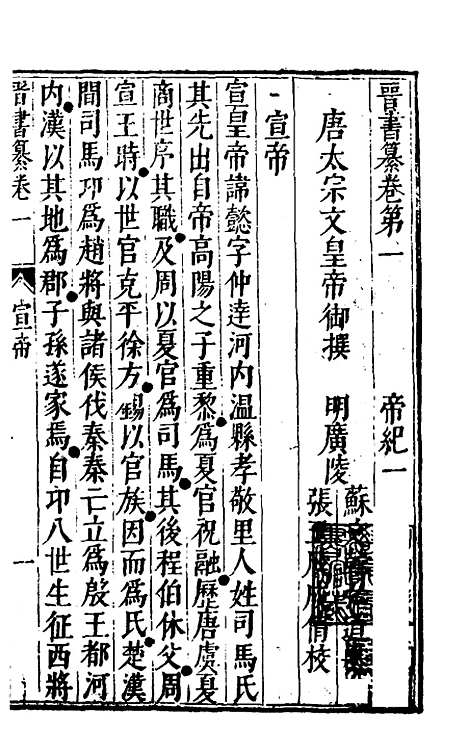 晉書纂卷第一　帝紀一
唐太宗文皇帝御撰　明廣陵
蘇
張　偕校
宣帝
宣皇帝諱懿字仲達河内温縣孝敬里人姓司馬氏
其先出自帝高陽之子重黎爲夏官祝融歷唐虞夏
商世序其職及周以夏官爲司馬其後程伯休父周
宣王時以世官克平徐方錫以官族因而爲氏楚漢
間司馬卬爲趙將與諸侯伐秦秦亡立爲殷王都河
内漢以其地爲郡子孫遂家焉自卬八世生征西將
晉書纂卷一　宣帝　一